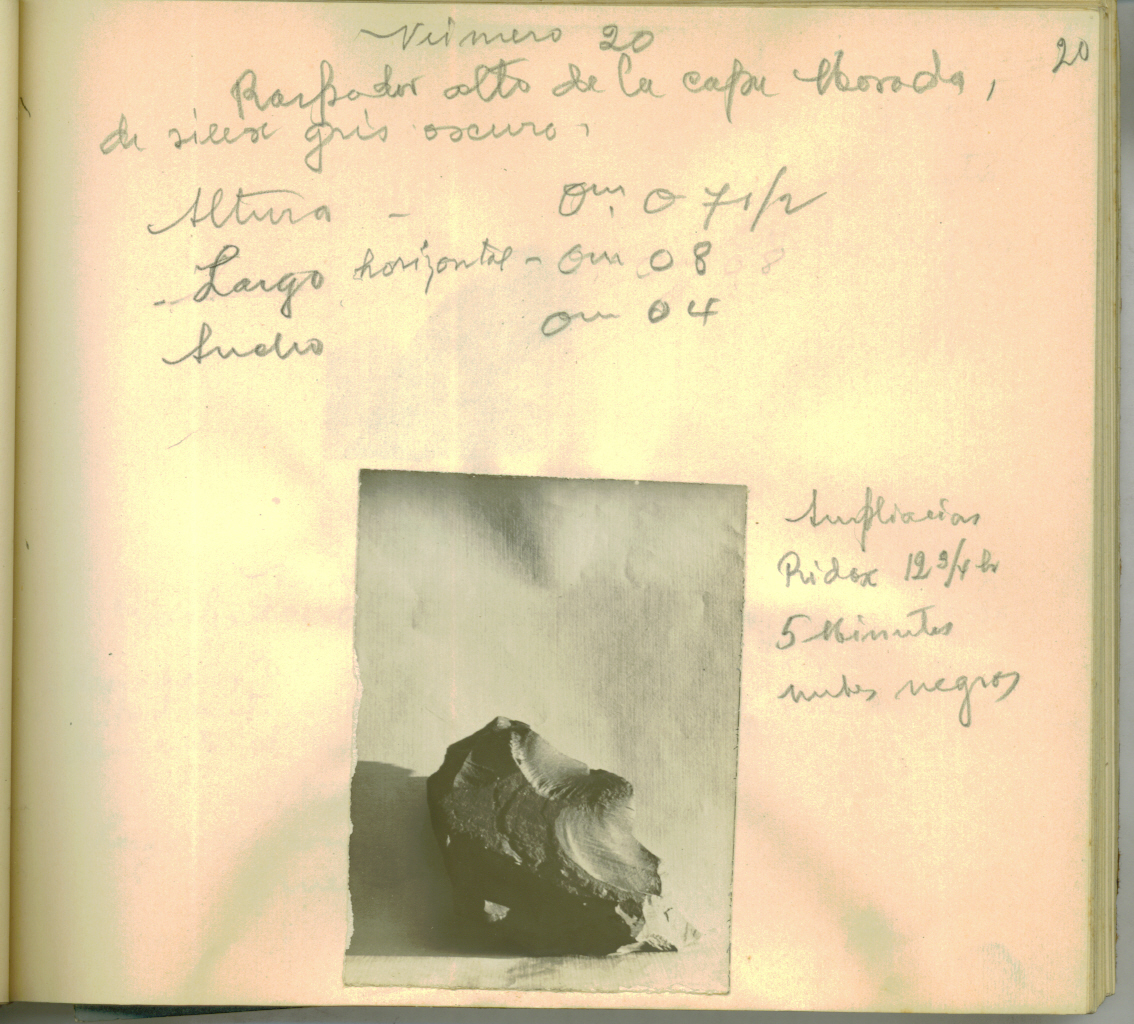 Número 20
20
Raspador alto de la capa Morada,
de silex gris oscuro,
Altura - 0m. 0 71/2
- Largo horizontal - 0m 08
Ancho 0m 04
Ampliacion
Ridax 12 3/4 h
5 Minutos
nubes negros